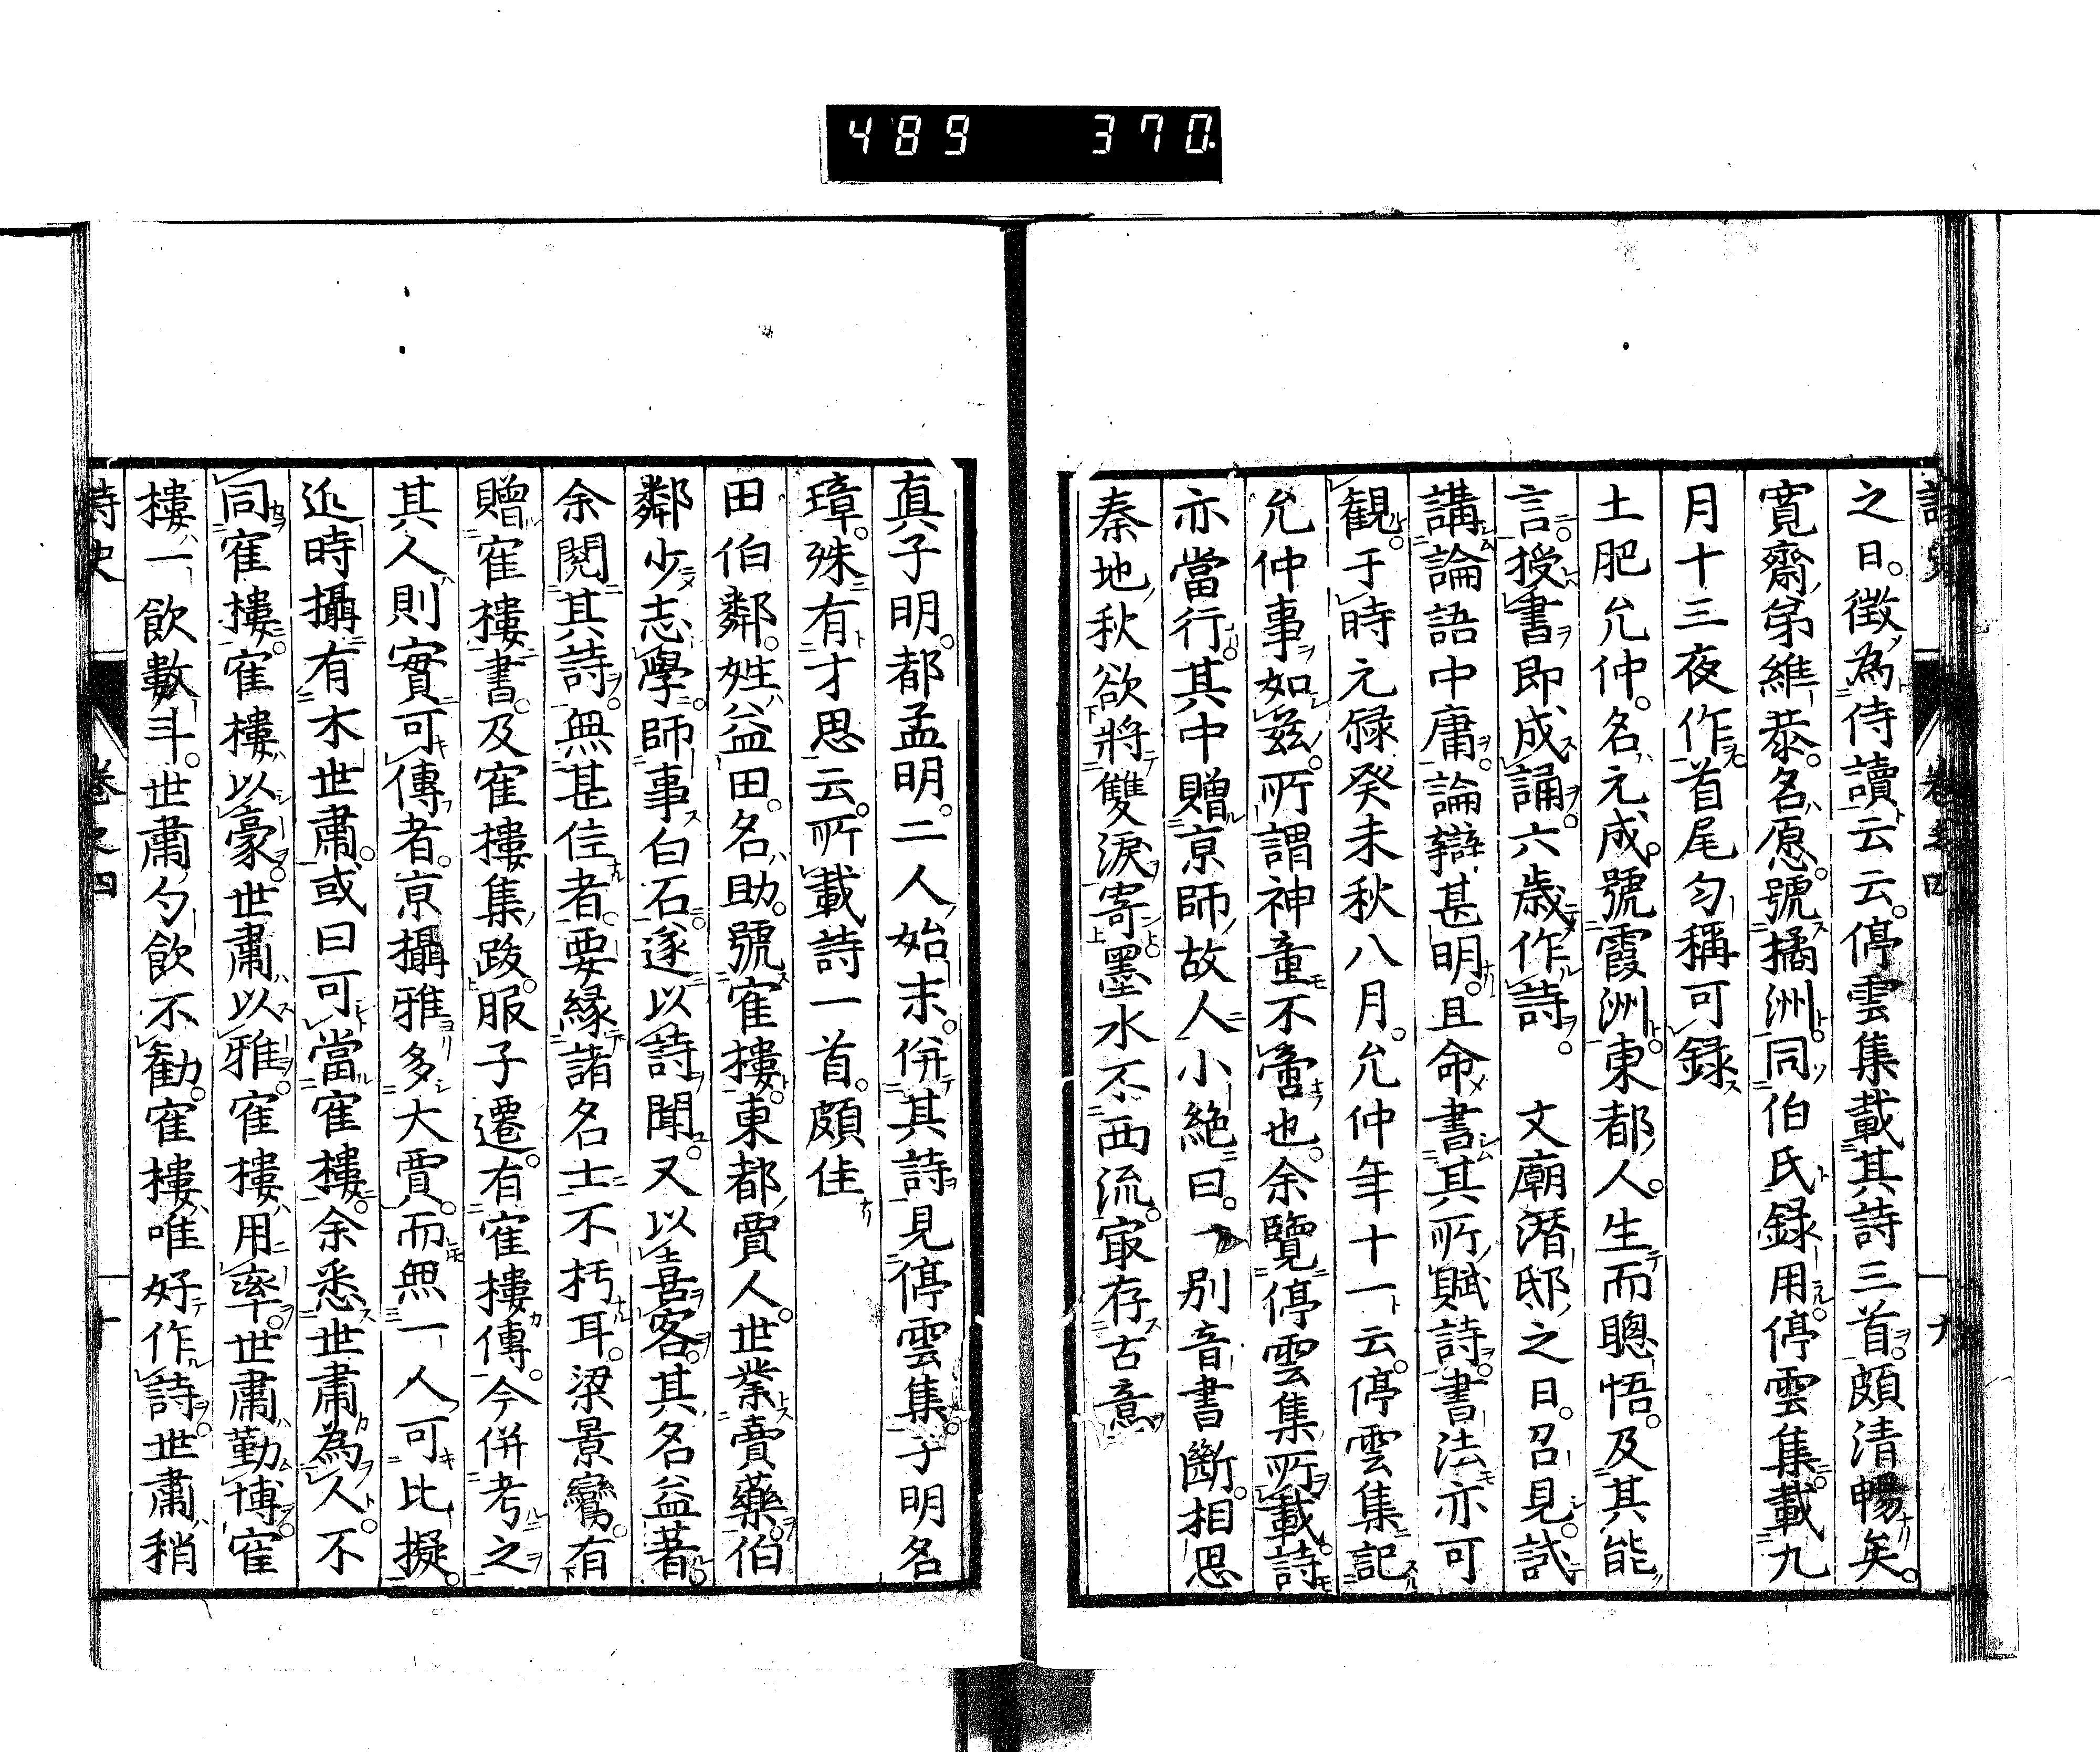 489 370
之日。徵為侍讀云云。停雲集載其詩三首。頗清暢矣。
寛齋弟維恭。名愿。號橘洲。同伯氏録用。停雲集。載九
月十三夜作。首尾匀稱可録
土肥允仲。名元成。號霞洲。東都人。生而聰悟。及其能
言。授書即成誦。六歳作詩。 文廟潜邸之日。召見。試
講論語中庸。論辯甚明。且命書其所賦詩。書法亦可
觀。于時元祿癸未秋八月。允仲年十一云。停雲集記
允仲事如茲。所謂神童不啻也。余覽停雲集所載。詩
亦當行。其中贈京師故人小絶曰。一別音書斷。相思
秦地秋欲將雙淚寄。墨水不西流。㝡存古意
真子明。都孟明。二人始末。併其詩見停雲集。子明名
璋。殊有才思云。所載詩一首。頗佳
田伯鄰。姓益田。名助。號寉樓。東都賈人。世業賣藥。伯
鄰少志學。師事白石。遂以詩聞。又以喜客。其名益著。
余閲其詩。無甚佳者。要緣諸名士不朽耳。梁景鸞。有
贈寉樓書。及寉樓集跋。服子遷。有寉樓傳。今併考之
其人則實可傳者。京攝雅多大賈。而無一人可比擬。
近時攝有木世肅。或曰可當寉樓。余悉世肅為人。不
同寉樓。寉樓以豪。世肅以雅。寉樓用率。世肅勤博。寉
樓一飲數斗。世肅勺飲不勧。寉樓唯好作詩。世肅稍
詩史 卷之四 十